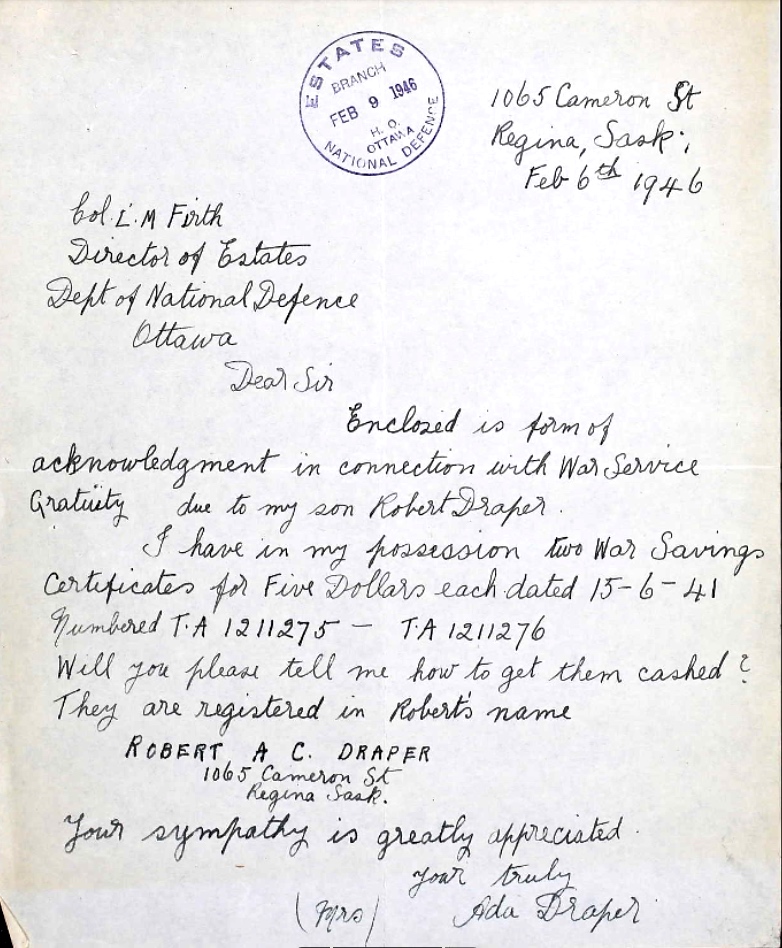 ESTATES
BRANCH
FEB 9 1946
H. Q.
OTTAWA
NATIONAL DEFENCE
1065 Cameron St
Regina, Sask;
Feb 6th 1946
Col. L. M Firth
Director of Estates
Dept of National Defence
Ottawa
Dear Sir
Enclosed is form of
acknowledgment in connection with War Service
Gratuity due to my son Robert Draper.
I have in my possession two War Savings
Certificates for Five Dollars each dated 15-6-41
Numbered T.A 1211275 — T.A 1211276
Will you please tell me how to get them cashed?
They are registered in Robert's name
ROBERT A C. DRAPER
1065 Cameron St
Regina Sask.
Your sympathy is greatly appreciated.
Your truly
(Mrs) Ada Draper